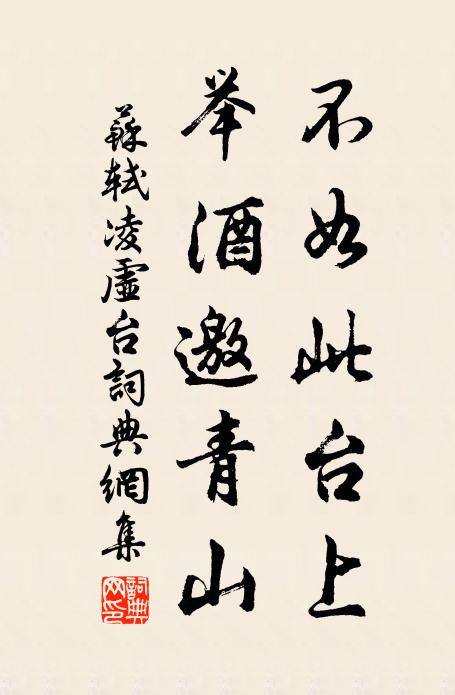 不如此台上
举酒邀青山
蘇軾凌虛台詞典網集
詞典网印